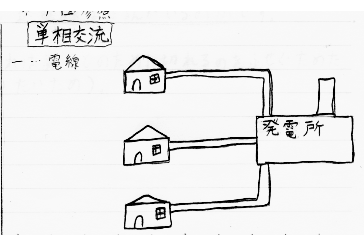 単相交流
一…電線
発電所